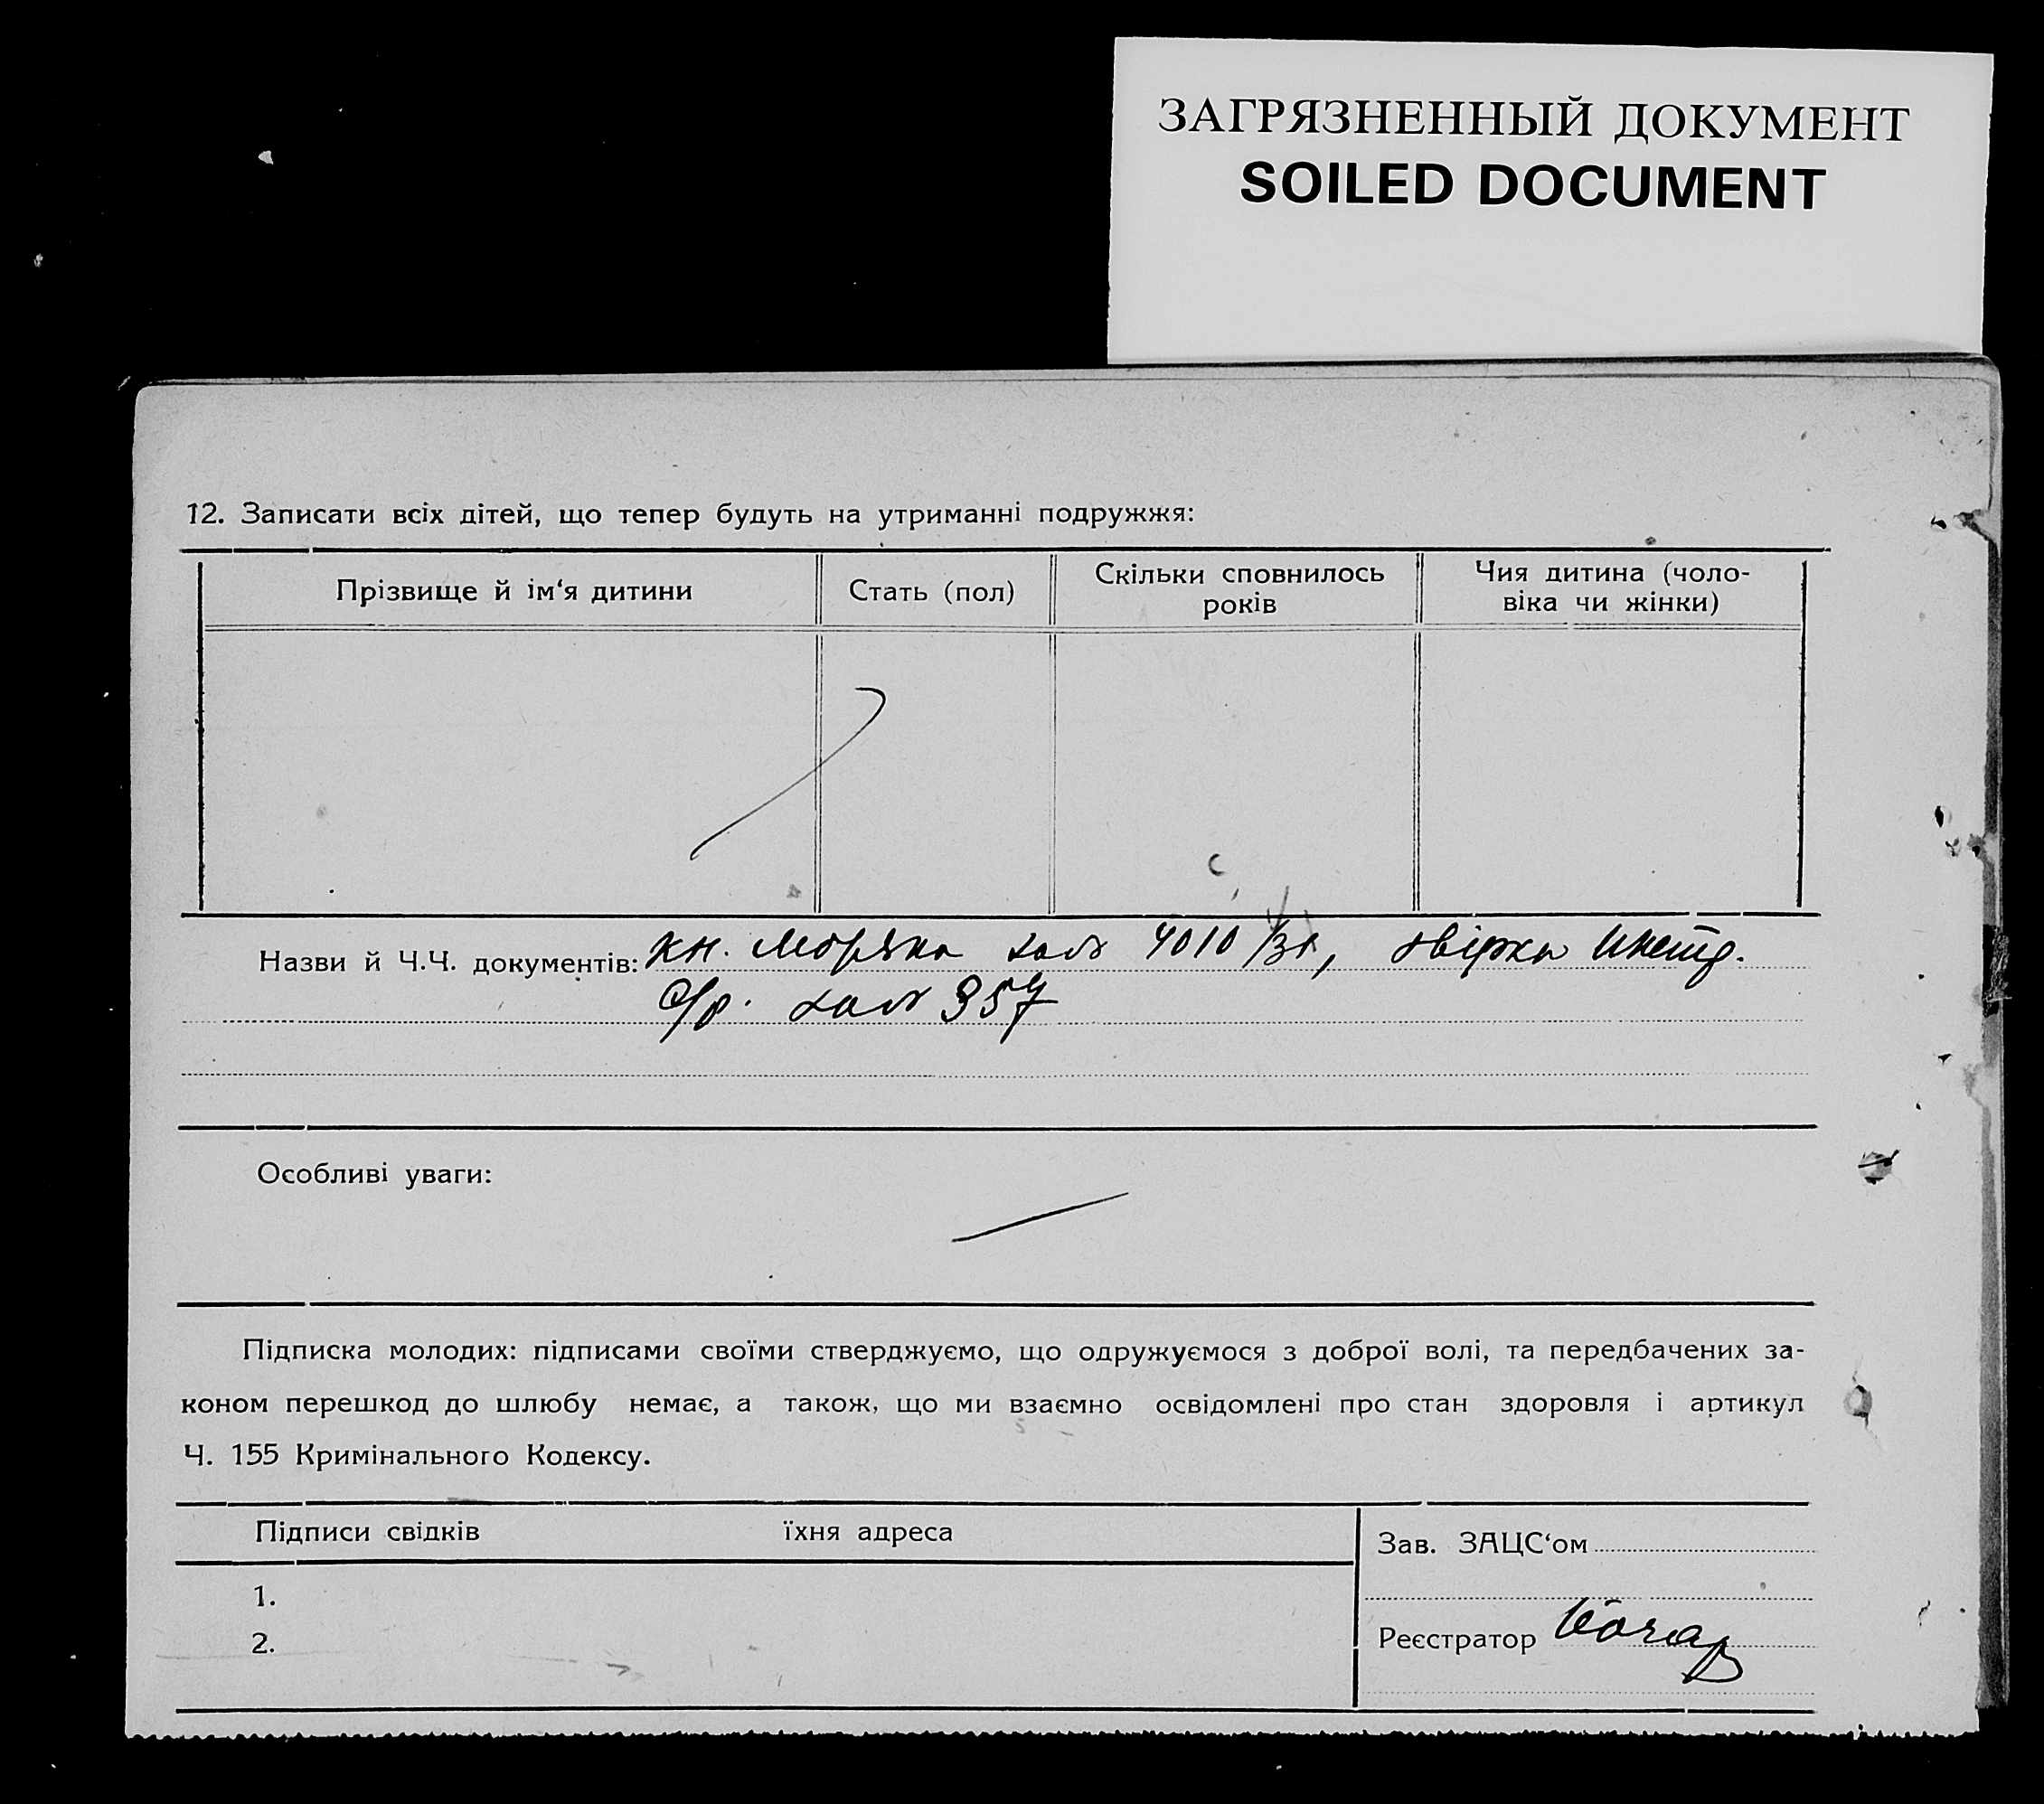 ЗАГРЯЗНЕННЫЙ ДОКУМЕНТ
SOILED DOCUMENT
12. Записати всіх дітей, що тепер будуть на утриманні подружжя:
Прізвище й ім‘я дитини
Стать (пол)
Скільки сповнилось
років
Чия дитина (чоло-
віка чи жінки)
Назви й Ч.Ч. документів: кн. моряка
357
Особливі уваги:
Підписка молодих: підписами своїми стверджуємо, що одружуємося з доброї волі, та передбачених за-
коном перешкод до шлюбу немає, а також, що ми взаємно освідомлені про стан здоровля і артикул
Ч. 155 Кримінального Кодексу.
Підписи свідків
їхня адреса
1.
2.
Зав. ЗАЦС‘ом
Реєстратор